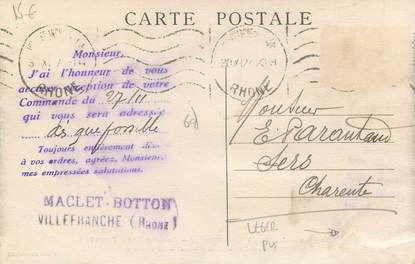 15 €
CARTE POSTALE
Monsieur,
J'ai l'honneur de vous
accuser réception de votre
Commande du 27/11
qui vous sera adressée
dès que possible
Toujours entièrement
à vos ordres, agréez, Monsieur,
mes empressées salutations.
MACLET-BOTTON
VILLEFRANCHE (RHONE)
RHONE
RHONE
69
Monsieur
E. Parantaud
Sers
Charente